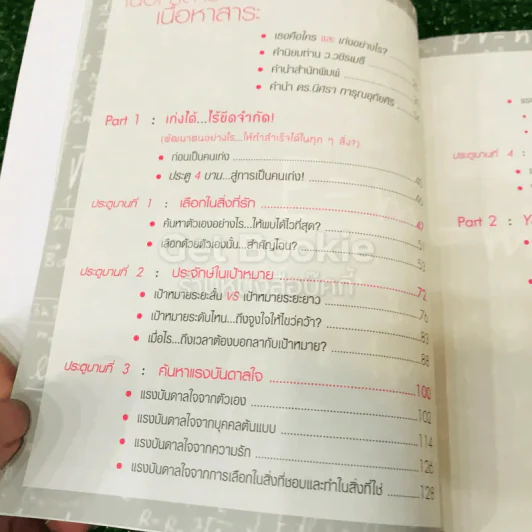 เนื้อหาสาระ
• เธอคือใคร และ เก่งอย่างไร?
• คำนิยมท่าน ว.วชิรเมธี
• คำนำสำนักพิมพ์
• คำนำ ดร.นิศรา การุณอุทัยศิริ
Part 1 : เก่งได้...ไร้ขีดจำกัด!
(พัฒนาตนอย่างไร...ให้ทำสำเร็จได้ในทุก ๆ สิ่ง?)
• ก่อนเป็นคนเก่ง
• ประตู 4 บาน...สู่การเป็นคนเก่ง!
ประตูบานที่ 1 : เลือกในสิ่งที่รัก 47
• ค้นหาตัวเองอย่างไร...ให้พบได้ไวที่สุด? 51
• เลือกด้วยตัวเองนั้น...สำคัญไฉน? 53
Get Bookie
ร้านหนังสือบุ๊คกี้
ประตูบานที่ 2 : ประจักษ์ในเป้าหมาย 72
• เป้าหมายระยะสั้น VS เป้าหมายระยะยาว 76
• เป้าหมายระดับไหน...ถึงจูงใจให้ไขว่คว้า? 83
• เมื่อไร...ถึงเวลาต้องบอกลากับเป้าหมาย? 88
ประตูบานที่ 3 : ค้นหาแรงบันดาลใจ 100
• แรงบันดาลใจจากตัวเอง 102
• แรงบันดาลใจจากบุคคลต้นแบบ 114
• แรงบันดาลใจจากความรัก 126
• แรงบันดาลใจจากการเลือกในสิ่งที่ชอบและทำในสิ่งที่ใช่ 128
ประตูบานที่ 4 :
Part 2 :